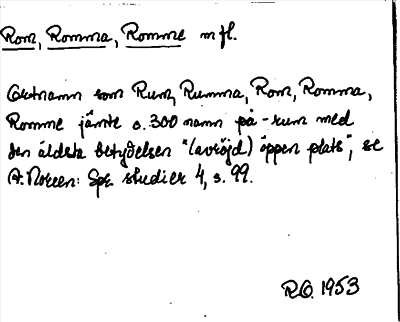 Rom, Romma, Romme m fl.
Ortnamn som Rum, Rumma, Rom, Romma,
Romme jämte c. 300 namn på -rum med
den äldsta betydelsen "(avröjd) öppen plats", se
A. Noreen: Spr. studier 4, s. 99.
R.O. 1953